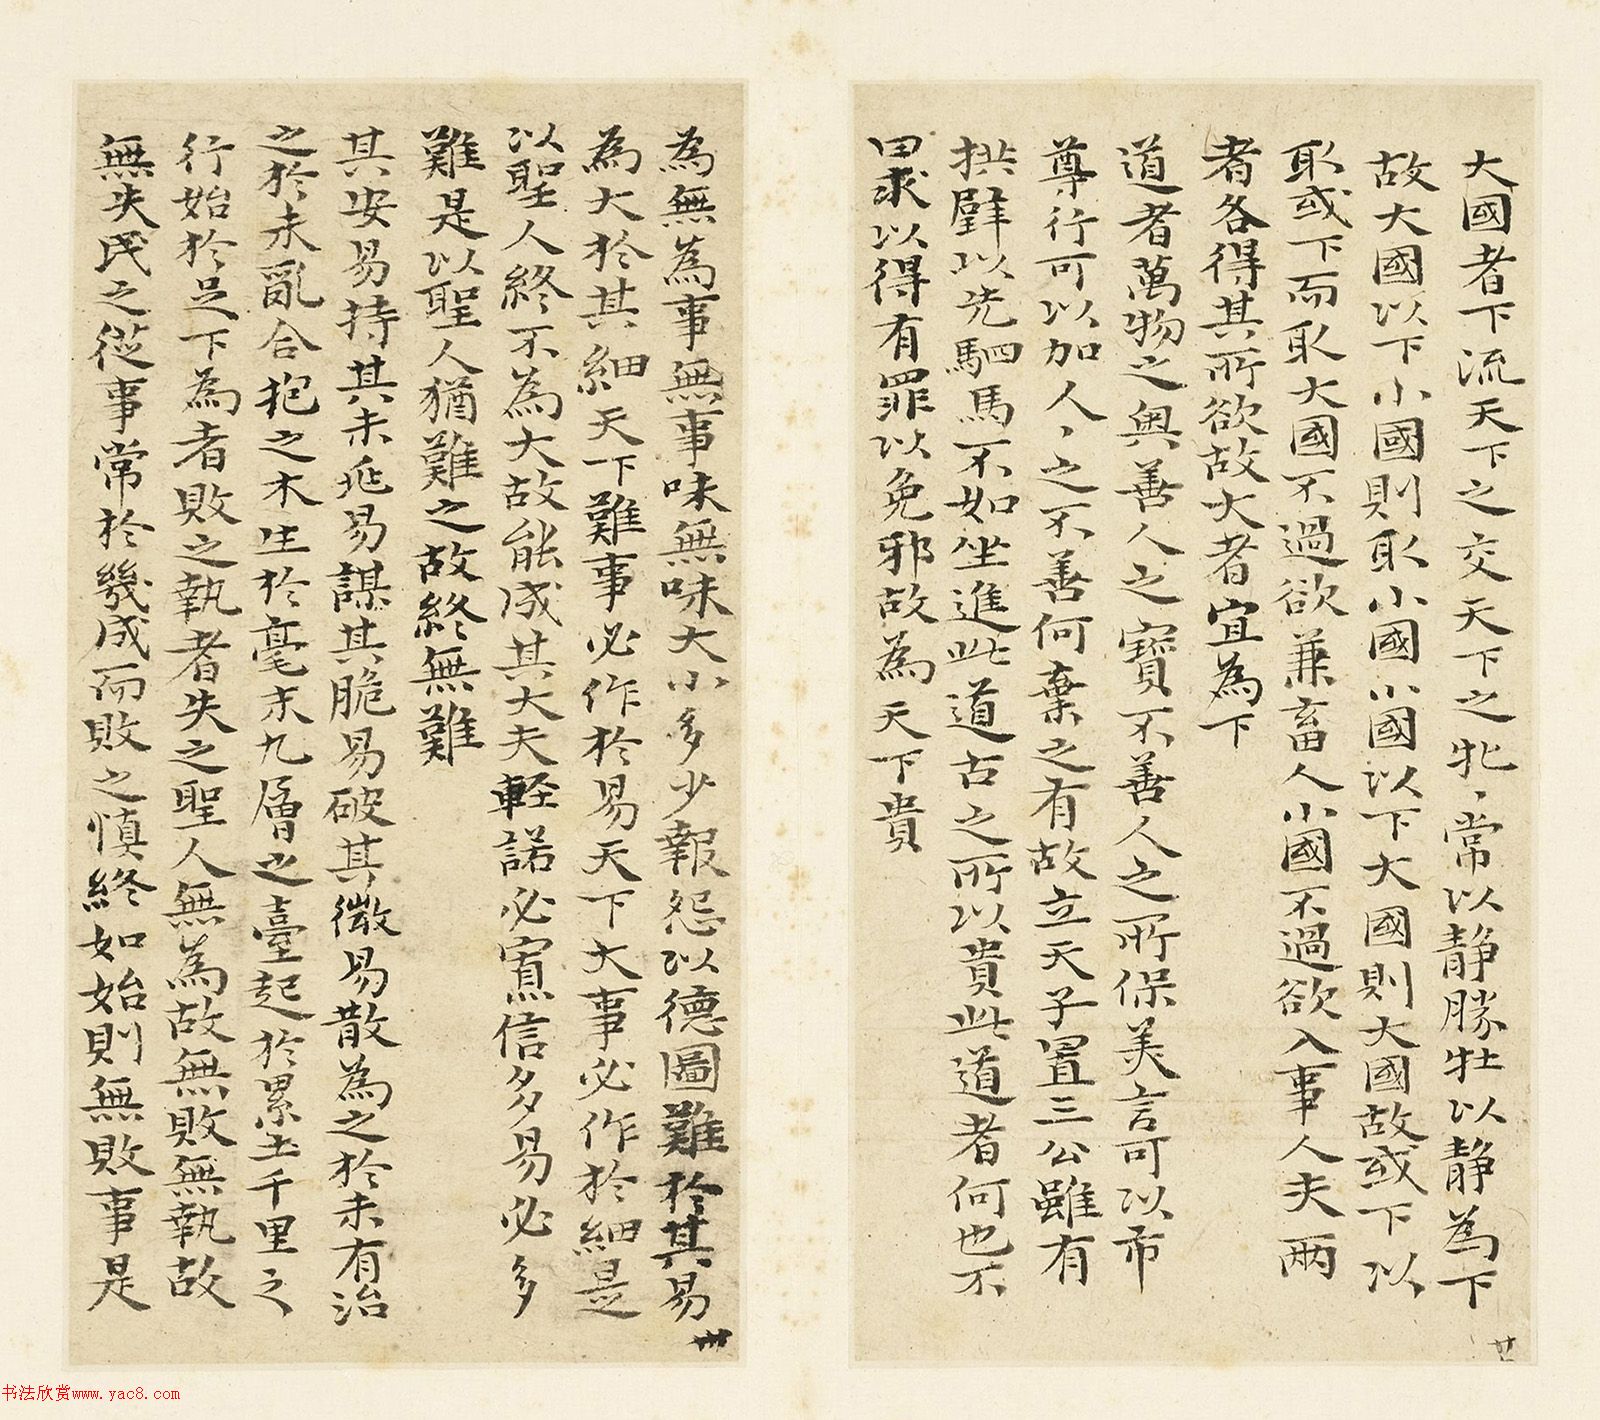 大國者下流天下之交天下之牝〻常以静勝牡以静為下
故大國以下小國則取小國小國以下大國則大國故或下以
取或下而取大國不過欲兼畜人小國不過欲入事人夫兩
者各得其所欲故大者宜為下
道者萬物之奥善人之寶不善人之所保美言可以市
尊行可以加人〻之不善何棄之有故立天子置三公雖有
拱璧以先駟馬不如坐進此道古之所以貴此道者何也不
曰求以得有罪以免邪故為天下貴
廿一
為無為事無事味無味大小多少報怨以德圖難於其易
為大於其細天下難事必作於易天下大事必作於細是
以聖人終不為大故能成其大夫軽諾必寡信多易必多
難是以聖人猶難之故終無難
其安易持其未兆易謀其脆易破其微易散為之於未有治
之於未亂合抱之木生於毫末九層之臺起於累土千里之
行始於足下為者敗之執者失之聖人無為故無敗無執故
無失民之從事常於幾成而敗之慎終如始則無敗事是
書法欣赏www.yac8.com